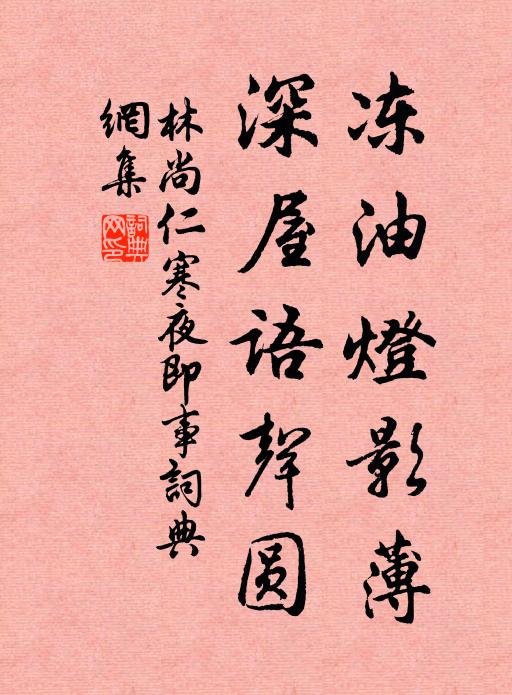 冻油燈影薄
深屋語聲圆
林尚仁寒夜即事詞典
網集
詞典網印